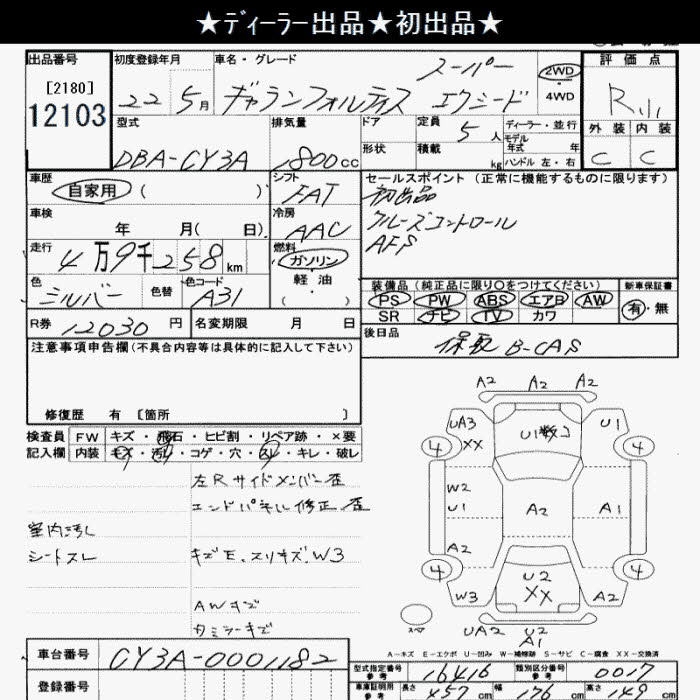 ★ディーラー出品★初出品★
出品番号 初度登録年月 車名・グレード 評価点
[2180]
12103
22 5月 ギャランフォルティス スーパー エクシード 2WD・4WD
型式 排気量 ドア 定員 5人 ディーラー・並行
モデル年式 年
形状 積載 kg ハンドル 左・右
外装 内装
C C
DBA-CY3A 1800cc
車歴 シフト セールスポイント(正常に機能するものに限ります)
自家用 ( ) FAT 初出品
車検 冷房 クルーズコントロール
年 月( 日) AAC AFS
走行 燃料
4万9千258km ガソリン
軽油
( )
色 色替 色コード
シルバー A31
装備品(純正品に限り○をつけてください) 新車保証書
PS PW ABS エアB AW 有・無
SR ナビ TV カワ
R券 12030円 名変期限 月 日
後日品 保取 B-CAS
注意事項申告欄(不具合内容等は具体的に記入して下さい)
修復歴 有 [箇所 ]
検査員 FW キズ・飛石・ヒビ割・リペア跡・×要
記入欄 内装 キズ・汚レ・コゲ・穴・スレ・キレ・破レ
左Rサイドメンバー歪
エンドパネル修正 歪
室内汚し
シートスレ
キズE、スリキズ、W3
AWキズ
A2 A2 A2
UA3 U1 U1
XX
4 4
W2
U1 A2 A1
A2
4 4
W3 U2 A2
XX
スペア
UA2 U2
A1
A-キズ E-エクボ U-凹み W-補修跡 S-サビ C-腐食 XX-交換済
車台番号 CY3A-0001182
型式指定番号 参考 16416 類別区分番号 参考 0017
登録番号
車庫証明用 参考 長さ 457cm 幅 176cm 高さ 149cm